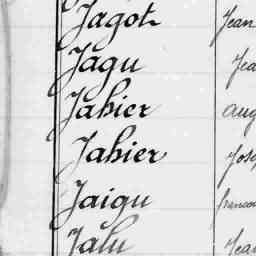 Jagot Jean
Jagu Jea
Jahier aug
Jahier Jose
Jaigu francoi
Jalu Jean